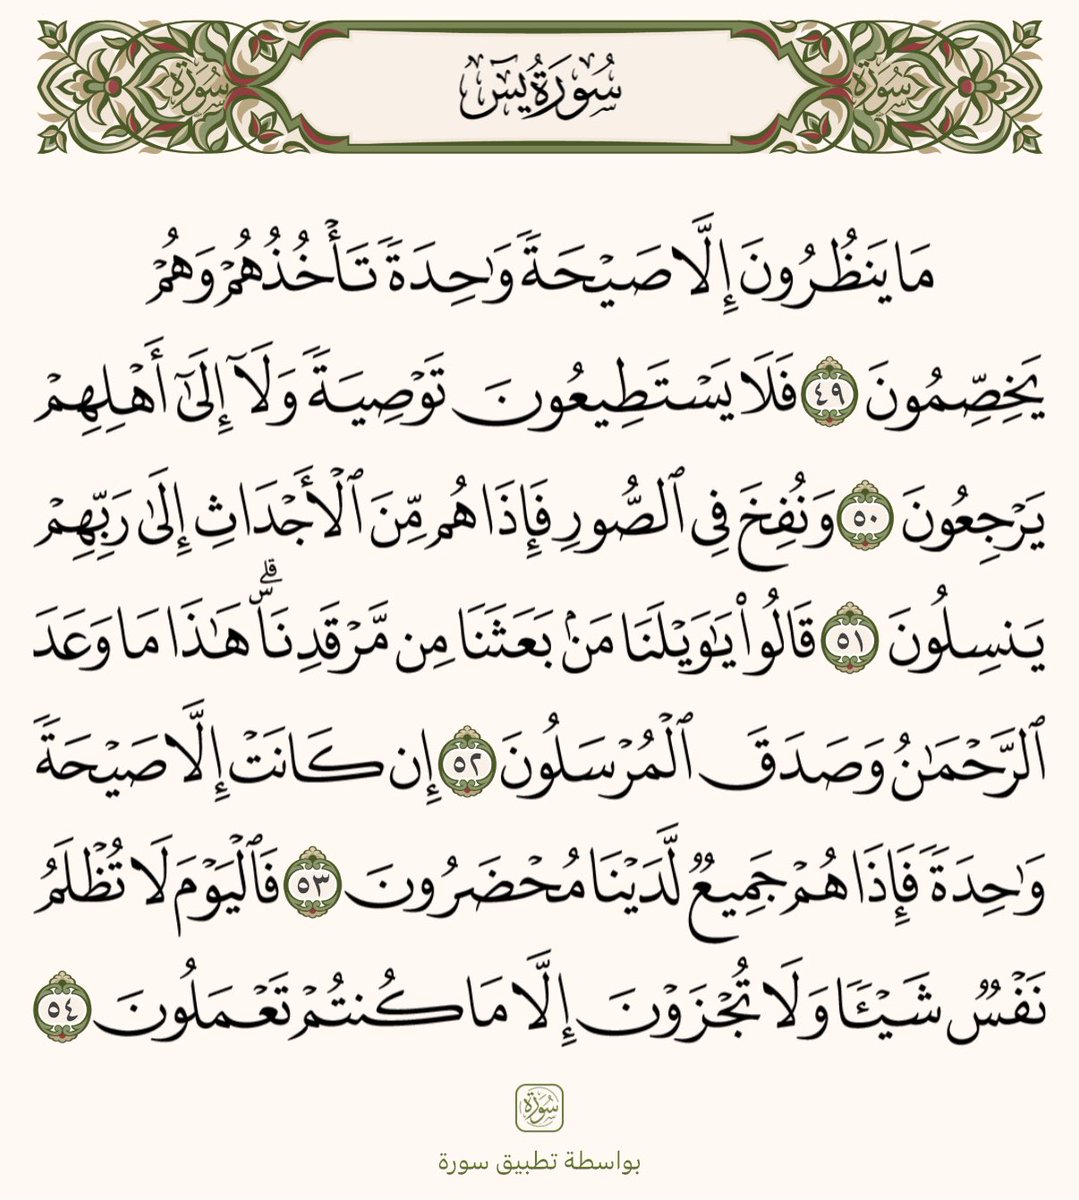 سُورَةُ يسٓ
سُورَة
سُورَة
مَا يَنظُرُونَ إِلَّا صَيْحَةً وَٰحِدَةً تَأْخُذُهُمْ وَهُمْ
يَخِصِّمُونَ ٤٩ فَلَا يَسْتَطِيعُونَ تَوْصِيَةً وَلَآ إِلَىٰٓ أَهْلِهِمْ
يَرْجِعُونَ ٥٠ وَنُفِخَ فِى ٱلصُّورِ فَإِذَا هُم مِّنَ ٱلْأَجْدَاثِ إِلَىٰ رَبِّهِمْ
يَنسِلُونَ ٥١ قَالُوا۟ يَٰوَيْلَنَا مَنۢ بَعَثَنَا مِن مَّرْقَدِنَاۜۗ هَٰذَا مَا وَعَدَ
ٱلرَّحْمَٰنُ وَصَدَقَ ٱلْمُرْسَلُونَ ٥٢ إِن كَانَتْ إِلَّا صَيْحَةً
وَٰحِدَةً فَإِذَا هُمْ جَمِيعٌ لَّدَيْنَا مُحْضَرُونَ ٥٣ فَٱلْيَوْمَ لَا تُظْلَمُ
نَفْسٌ شَيْـًٔا وَلَا تُجْزَوْنَ إِلَّا مَا كُنتُمْ تَعْمَلُونَ ٥٤
سُورَة
بواسطة تطبيق سورة